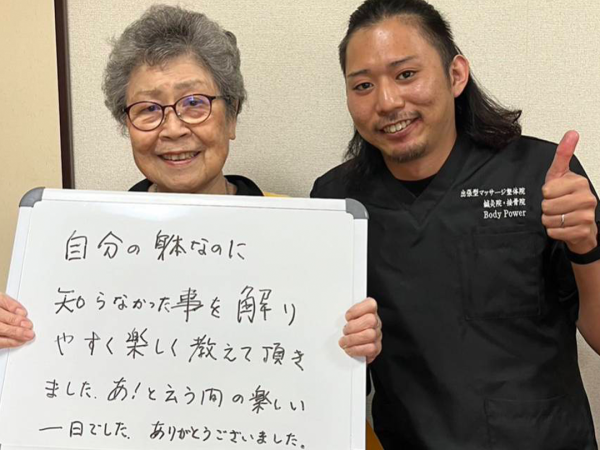 自分の身体なのに
知らなかった事を解り
やすく楽しく教えて頂き
ました。あ!と云う間の楽しい
一日でした。ありがとうございました。
出張型マッサージ整体院
鍼灸院・接骨院
Body Power